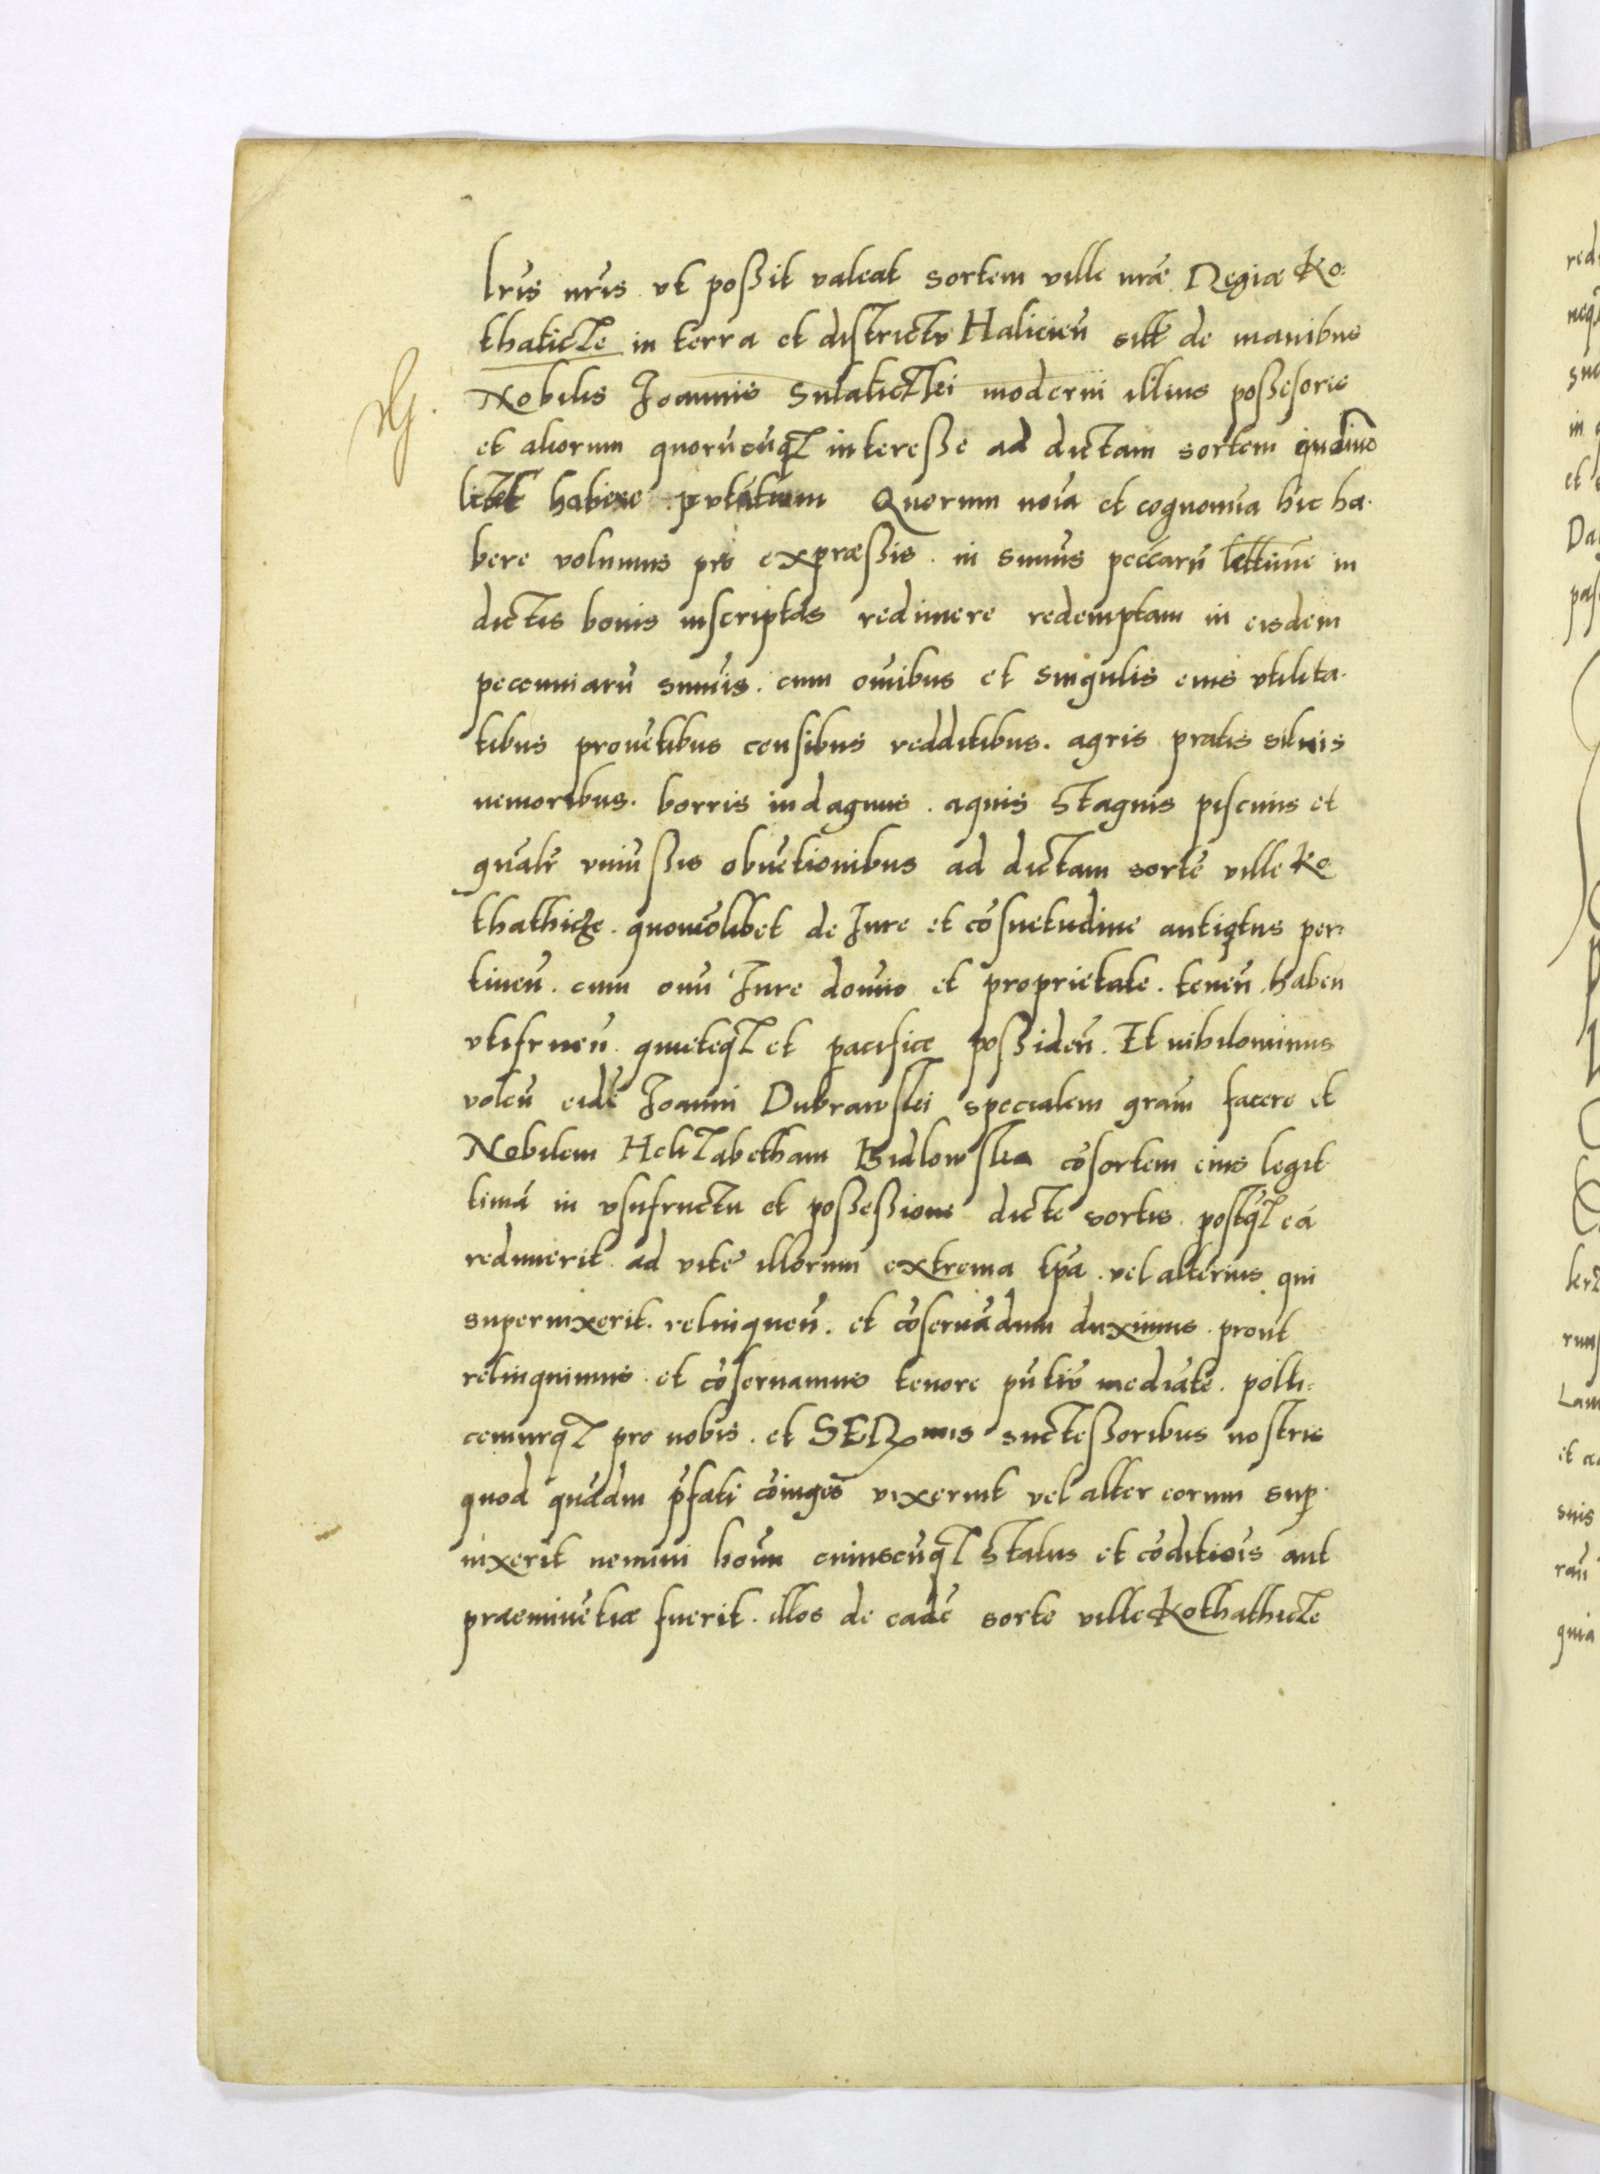 lrīs nrīs vt possit valeat sortem ville nrāe Regiae Ko:
thaticze in terra et districtu Halicieñ sitt̄ de manibus
Nobilis Joannis Sulaticzki moderni illius possesoris
et aliorum quorūcūq interesse ad dictam sortem
habere Quorum noīa et cognomīa hic ha-
bere volumus prō expraessis. in summīs peccarū lēttime in
dictis bonis inscriptas redimere redemptam in eisdem
peccuniarū summis. cum omībus et singulis eius vtilita-
tibus prouētibus censibus redditibus. agris pratis siluis
nemoribus. borris indagīnis. aquis stagnis piscinis et
gñalr̄ vniūssis obuētionibus ad dictam sortē ville Ko
thathicze. quomōlibet de Jure et cōsuetudine antiqtus per:
tineñ. cum omī Jure domīo et proprietate. teneñ. habeñ
vtifrueñ. quieteq et pacificae possideñ. Et nihilominus
voleñ eidē Joanni Dubrawski specialem grām facere et
Nobilem Helizabetham Bidlowska cōsortem eius legit
timā in vsufructu et possessione dicte sortis. postq eā
redimerit. ad vite illorum extrema tpā. vel alterius qui
superuixerit. relinqueñ. et cōseruādum duximus. prout
relinquimus. et cōseruamus tenore pn̄tiū mediāte. polli:
cemurq pro nobis. et SERmis suctessoribus nostris
quod quādiu p̄fati cōiuges vixerint vel alter eorum sup
uixerit nemini homī cuiuscūq status et cōditiois aut
praeminētiae fuerit. illos de eadē sorte ville Kothathicze